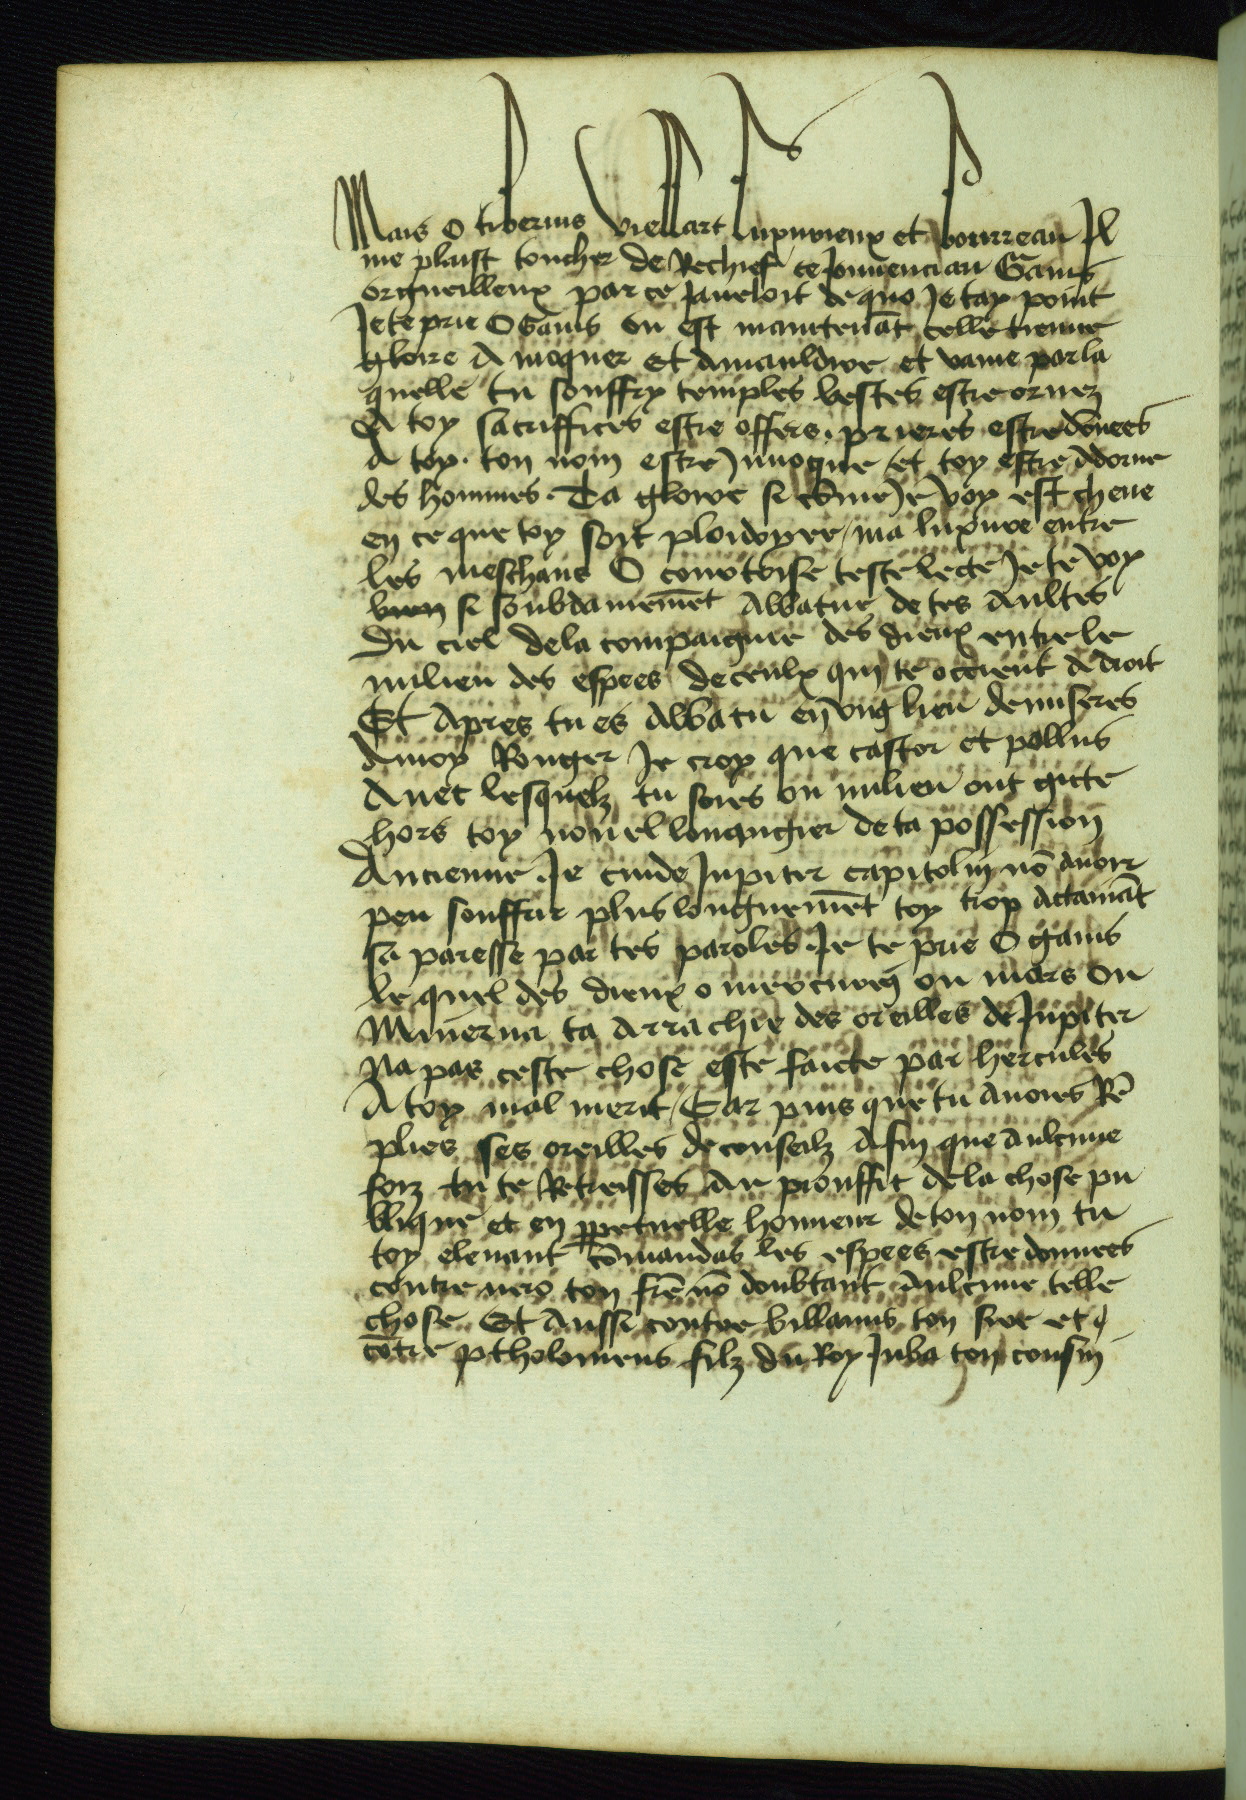 Mais O tiberius viellart luxurieux et bourreau Il
me plaist toucher de Rechief ce Jouuenciau Gaius
orgueilleux par ce Jaueloit de quo Je tay point
Je te prie O Gaius ou est maintenāt celle tienne
gloire A moquer et A mauldire et vaine par la
quelle tu souffry temples bestes estre ornez
A toy sacriffices estre offers. prieres estre dōnees
A toy. ton nom estre Inuoque et toy estre Adorne
des hommes. Ta gloire si cōme Je voy est cheue
en ce que toy soit ploidoyee / ma luxure entre
les meschans O conuotoise teste lecte Je te voy
bien si soubdainemēt Abbatue de tes Aultes
Du ciel de la compaignie des dieux entre le
milien des espees de ceulx qui te occient de droit
Et Apres tu es Abbatu en vng lieu de miseres
A moy Rouger Je croy que castor et pollus
Auec lesquelz tu soies ou milieu ont gicte
hors toy nouel louangier de ta possession
Ancienne. Je cuide Jupiter capitolin nō auoir
peu souffrir plus longuemēt toy trop Actaināt
sa paresse par tes paroles. Je te prie O gaius
le quel des dieux o mercureȳ ou mars ou
Minerua ta Arrachie des oreilles de Jupiter
Na pas ceste chose este faicte par hercules
A toy mal merit / Car puis que tu Auoies Rē
plies ses oreilles de conseilz Afin que Aulcune
foiz tu te Retreisses Au prouffit de la chose pu
blique et en ꝑpetuelle honneur de ton nom tu
toy eleuant cōmandas les espees estre donnees
contre nero ton frē nō doubtant Aulcune telle
chose Et Aussi contre billanus ton sire et
cōtre ptholomeus filz du Roy Juba ton cousin